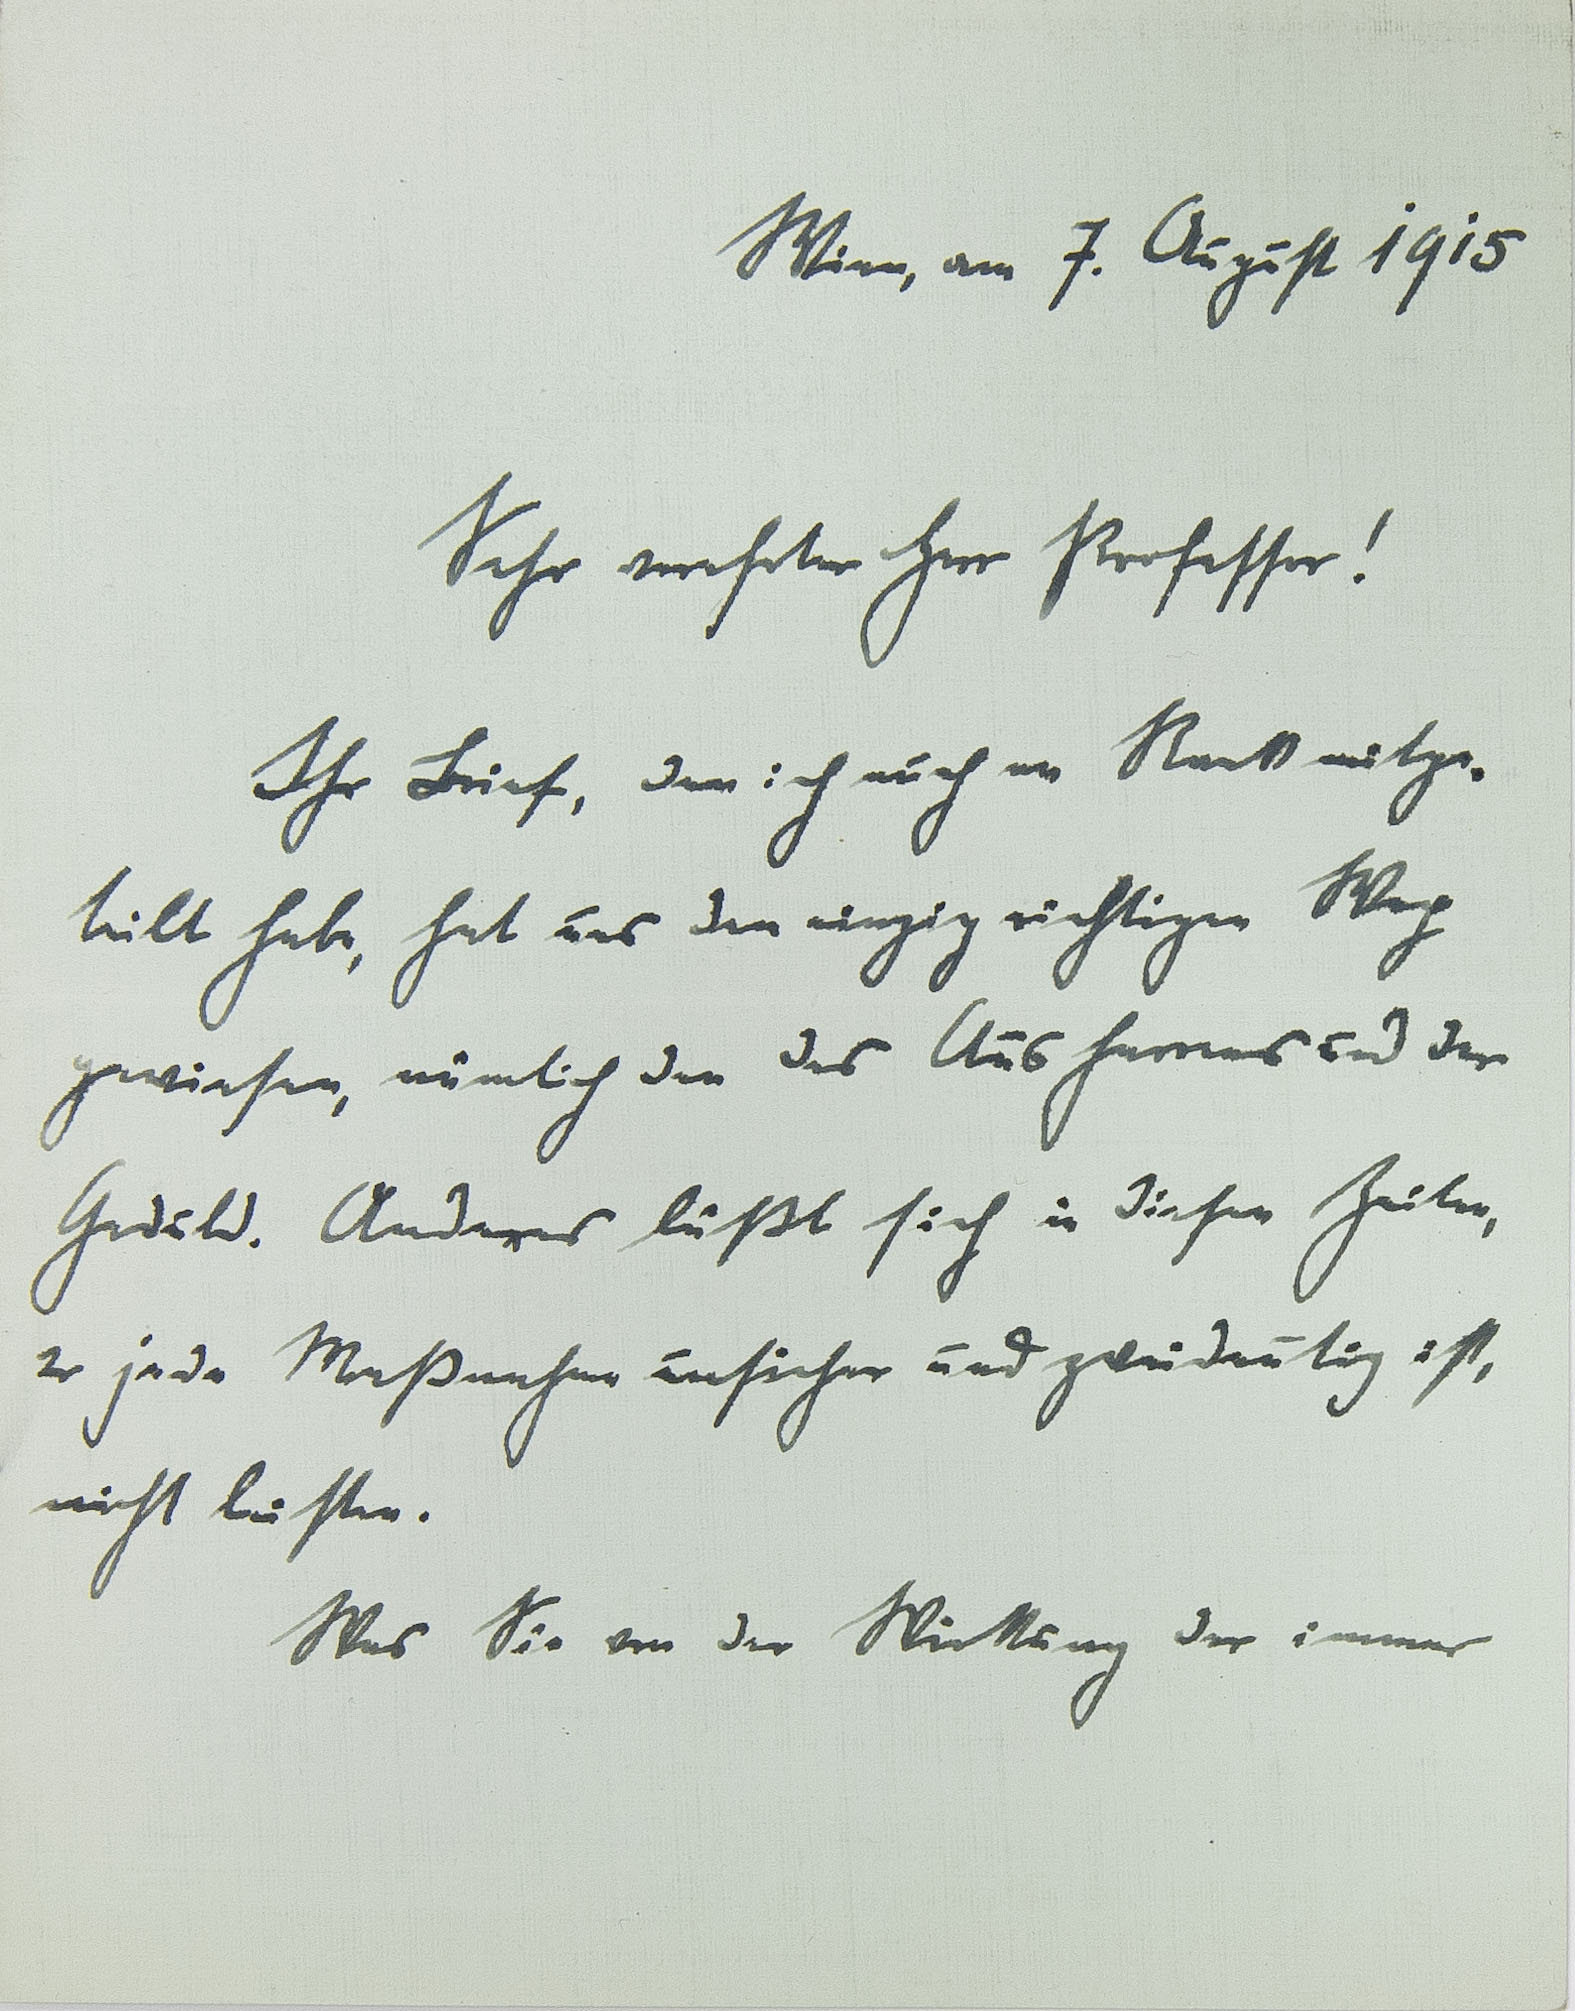 Wien, am 7. August 1915
Sehr verehrter Herr Professor!
Ihr Brief, den ich auch an Rank mitge-
teilt habe, hat uns den einzig richtigen Weg
gewiesen, nämlich den des Ausharrens und der
Geduld. Anderes läßt sich in diesen Zeiten,
wo jede Maßnahme unsicher und zweideutig ist,
nicht leisten.
Was Sie von der Wirkung der immer